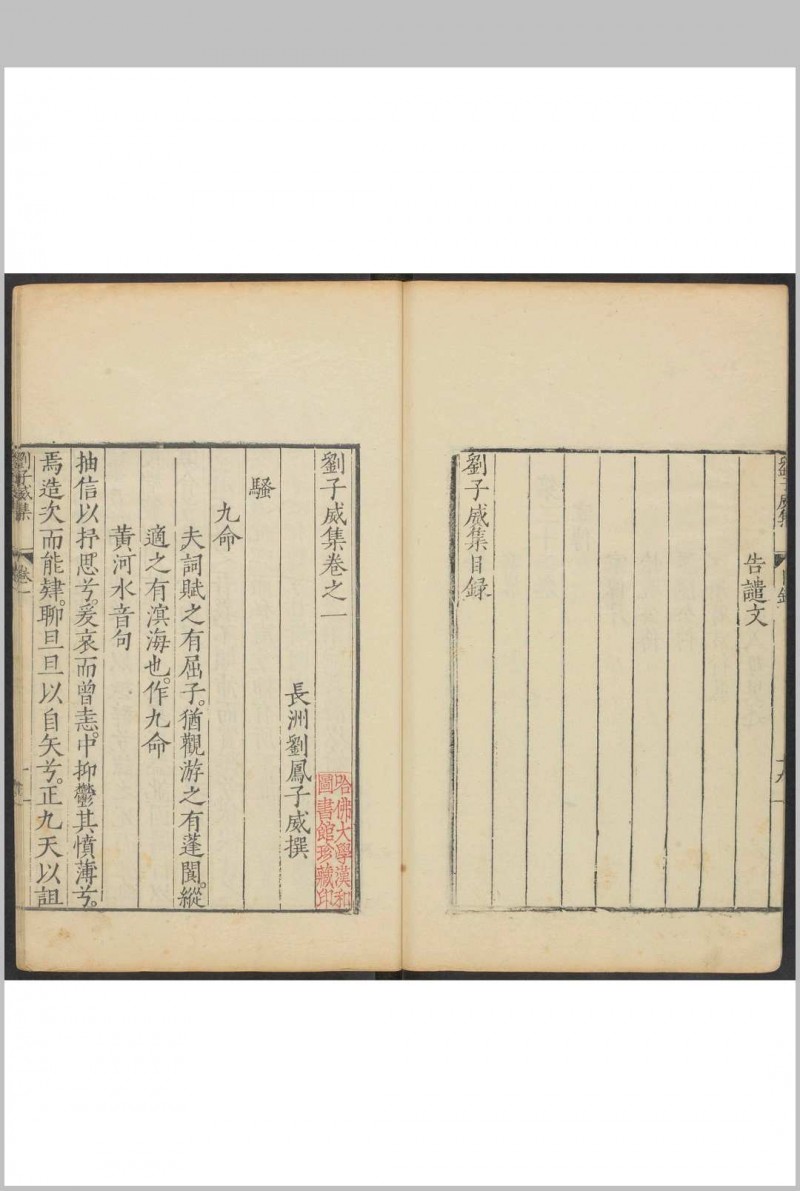 告譴文
劉子威集目錄
劉子威集卷之一
長洲劉鳳子威撰
哈佛大學漢和
圖書館珍藏印
騷
九命
夫詞賦之有屈子。猶觀游之有蓬閬。縱
適之有溟海也。作九命
黃河水音句
抽信以抒思兮。爰哀而曾恚。中抑鬱其憤薄兮。
焉造次而能肄。聊旦旦以自矢兮。正九天以詛
劉子威集
卷一
一